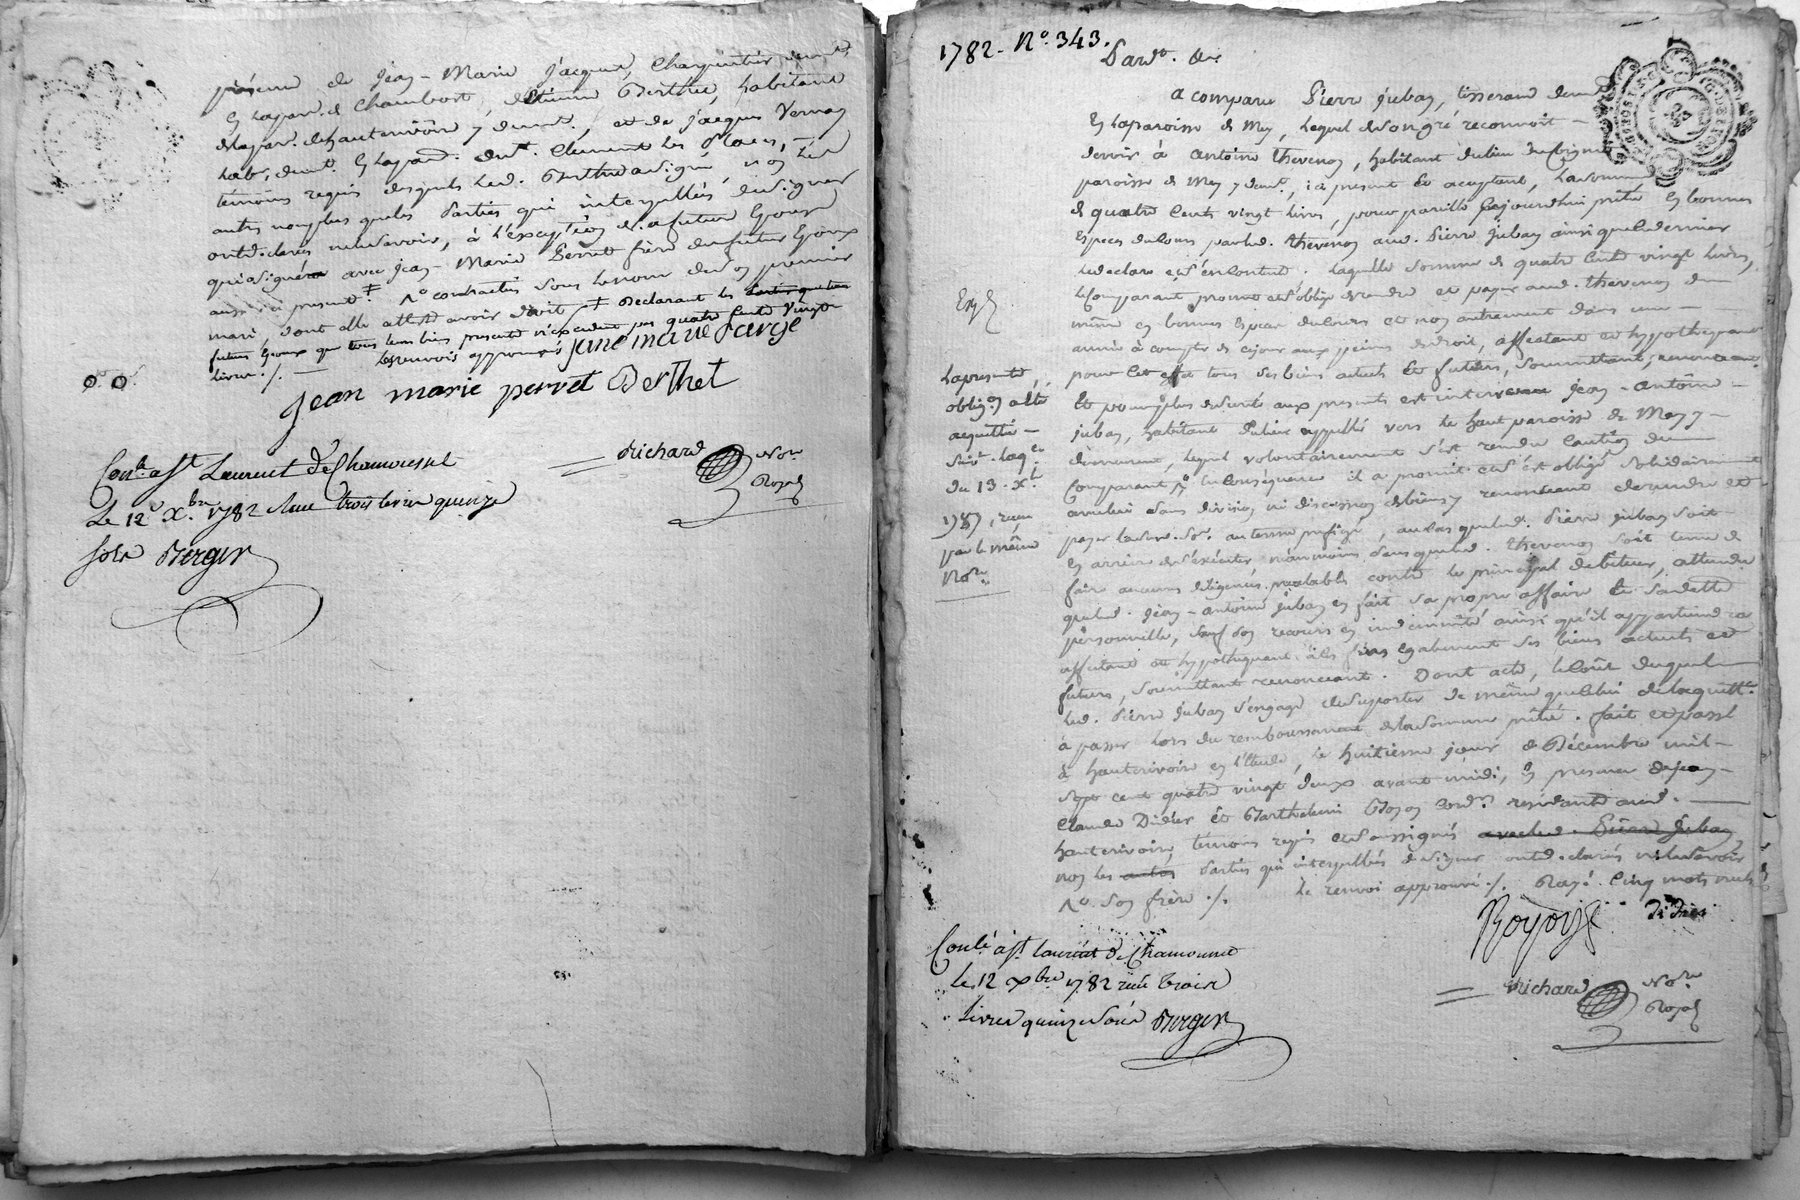 présence de Jean-Marie Jacquet, Charpentier demt.
en la par. de Chambost, d'Etienne Berthet, habitant
de la par. d'hauterivoire y demt., et de Jacques Vernay
lab. demt. en la par. de st. Clement les Places,
témoins requis desquels led. Berthet a signé, non les
autres non plus que les Parties qui interpellés de signer
ont déclaré ne le savoir, à l'exception de la future Epouse
qui a signé avec Jean-Marie Perret frère du futur Epoux
aussi ici présent
mari, dont elle atteste avoir droit ‡ Déclarant les
futurs Epoux que tous leurs biens présents n'excedent pas quatre Cents Vingt
livres ./. les renvois approuvés
jane marie
Jean marie perret Berthet
Richard No.re
Royal
Conlé. a St. Laurent de Chamousset
Le 12e Xbre 1782 Reçu trois livres quinze
sols Berger
1782 - No. 343.
Pardt. &c.
a comparu Pierre Juban, tisserand demt.
en la paroisse de Meys, lequel de son gré reconnoit
devoir à Antoine Thevenon, habitant du lieu du
paroisse de Meys y demt., ici présent et acceptant, la somme
de quatre Cents vingt livres, pour pareille cejourd'hui prêtée en bonnes
Especes du Cours par led. Thevenon aud. Pierre Juban ainsi que ce dernier
le declare et s'en contente. Laquelle somme de quatre Cents vingt livres,
le Comparant promet et s'oblige de rendre et payer aud. Thevenon
même en bonnes Especes du Cours et non autrement dans une
année à compter de ce jour aux peines de droit, affectant et hypothequant
pour cet effet tous ses biens actuels et futurs, soumettant, renonceant.
Et pour plus de sureté aux presentes est intervenu Jean-Antoine
Juban, habitant du lieu appellé vers le haut paroisse de Meys y
demeurant, lequel volontairement s'est rendu Caution du
Comparant En Conséquence il a promis et s'est obligé solidairement
avec lui sans division ni discussion de biens y renonceant de rendre et
payer lad. So. au terme prefigé, au cas que led. Pierre Juban soit
en arriere de s'exécuter néanmoins sans que led. Thevenon soit tenu de
faire aucunes diligences prealables contre le principal débiteur, attendu
que led. Jean-Antoine Juban en fait sa propre affaire et sa dette
personnelle, sauf son recours en indemnité ainsi qu'il appartiendra
affectant et hypothequant à ces fins egalement ses biens actuels et
futurs, soumettant renonceant. Dont acte, le Coût duquel
led. Pierre Juban s'engage de suporter de même que celui de la quitt.ce
à passer lors du remboursement de la somme prêtée. fait et passé
à hauterivoire en l'étude, le huitieme jour de Décembre mil
sept cent quatre vingt deux avant midi, en présence de Jean-
Claude Didier et Barthelemi Royon Cord.rs residants aud.
hauterivoire, témoins requis et soussignés avec led. Pierre Juban
non les autres Parties qui interpellés de signer ont déclaré ne le savoir
son frère ./. Le renvoi approuvé ./. Rayé Cinq mots nuls
Royon Didier
Richard No.re
Royal
Exp.
La presente
oblig.on a été
acquittée
suivt. la q.ce
du 13 Xbre
reçue
par le même
No.re
Conlé à St. laurent de Chamousset
le 12 xbre 1782 reçu trois
livres quinze sols Berger